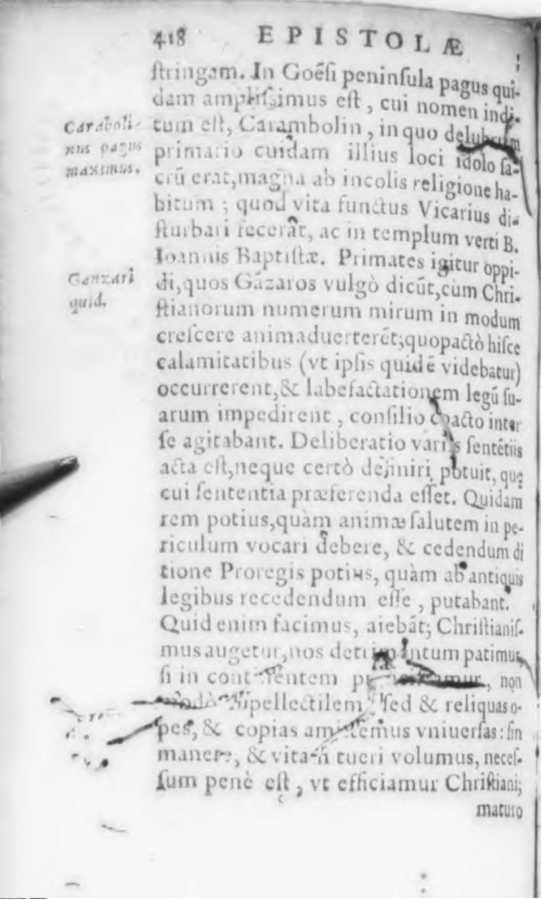 418 EPISTOLÆ
ſtringam. In Goëſi peninſula pagus qui-
dam ampliſsimus eſt, cui nomen indi-
tum eſt, Carambolin, in quo delubrum
Caraboli-
nus pagus
maximus.
primario cuidam illius loci idolo ſa-
crū erat, magna ab incolis religione ha-
bitum; quod vita functus Vicarius di-
ſturbari fecerāt, ac in templum verti B.
Ioannis Baptiſtæ. Primates igitur oppi-
Ganzari
quid.
di, quos Gázaros vulgò dicūt, cùm Chri-
ſtianorum numerum mirum in modum
creſcere animaduerterēt; quopactò hiſce
calamitatibus (vt ipſis quidē videbatur)
occurrerent, & labefactationem legū ſu-
arum impedirent, conſilio coacto inter
ſe agitabant. Deliberatio variis ſentētiis
acta eſt, neque certò definiri potuit, quę
cui ſententia præferenda eſſet. Quidam
rem potius, quàm animæ ſalutem in pe-
riculum vocari debere, & cedendum di
tione Proregis potius, quàm ab antiquis
legibus recedendum eſſe, putabant.
Quid enim facimus, aiebāt; Chriſtianiſ-
mus augetur, nos detrimentum patimur,
ſi in p non
ſed & reliquas o-
pes, & copias amittemus vniuerſas: ſin
manere, & vitam tueri volumus, neceſ-
ſum penè eſt, vt efficiamur Chriſtiani;
maturo